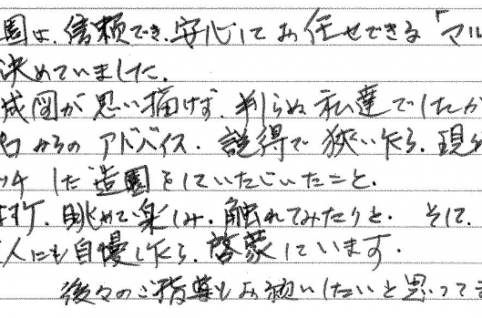 園は、信頼でき、安心してお任せできる「マル
決めていました。
成図が思い描けず、判らぬ私達でしたが
からのアドバイス、説得で狭いながら、現
ッチした造園をしていただいたこと。
眺めて楽しみ、触れてみたりと、そして、
人にも自慢したり、啓蒙しています。
後々のご指導もお願いしたいと思ってま